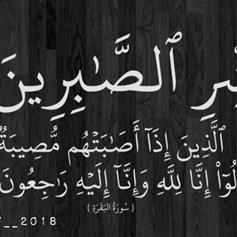 ٱلصَّـٰبِرِينَ
ٱلَّذِينَ إِذَآ أَصَـٰبَتْهُم مُّصِيبَةٌ
إِنَّا لِلَّهِ وَإِنَّآ إِلَيْهِ رَٰجِعُونَ
( سُورَةُ البَقَرَةِ )
__2018